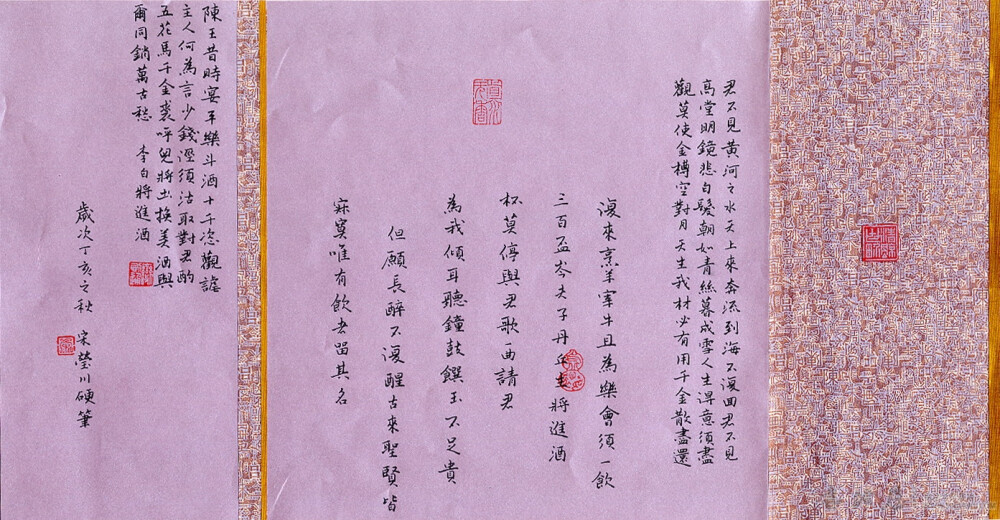 君不見黃河之水天上來奔流到海不復回君不見
高堂明鏡悲白髮朝如青絲暮成雪人生得意須盡
觀莫使金樽空對月天生我材必有用千金散盡還
復來烹羊宰牛且為樂會須一飲
三百盃岑夫子丹丘生將進酒
杯莫停與君歌一曲請君
為我傾耳聽鐘鼓饌玉不足貴
但願長醉不復醒古來聖賢皆
寂寞唯有飲者留其名
陳王昔時宴平樂斗酒十千恣觀謔
主人何為言少錢逕須沽取對君酌
五花馬千金裘呼兒將出換美酒與
爾同銷萬古愁 李白將進酒
歲次丁亥之秋 宋瑩川硬筆